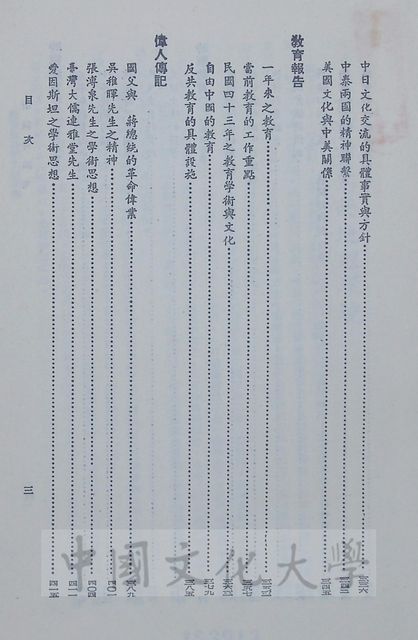 中日文化交流的具體事實與方針
中泰兩國的精神聯繫
美國文化與中美關係
教育報告
一年來之教育
當前教育的工作重點
民國四十三年之教育學術與文化
自由中國的教育
反共教育的具體設施 三八五
偉人傳記
國父與 蔣總統的革命偉業 三八九
吳稚暉先生之精神 四〇一
張溥泉先生之學術思想 四〇四
臺灣大儒連雅堂先生 四一一
愛因斯坦之學術思想 四一五
目次
三
中國文化大學